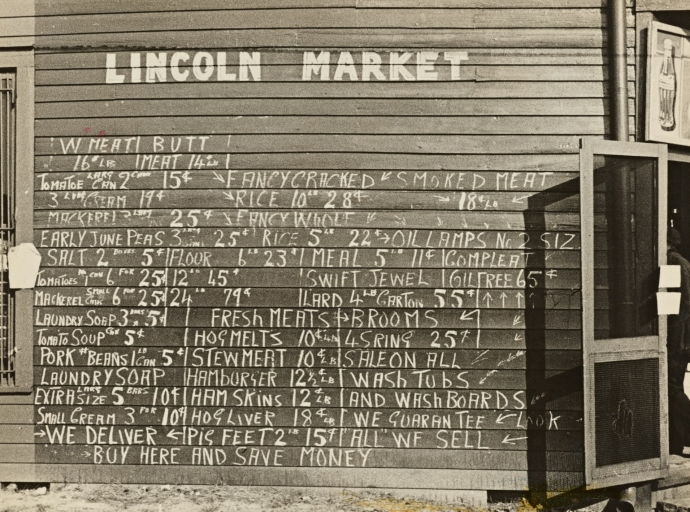 LINCOLN MARKET
W MEAT BUTT
16¢ LB MEAT 14¢ LB
TOMATOE LARG CAN 2 CANS 15¢ FANCY CRACKED SMOKED MEAT
3 CREAM 19¢ RICE 10 LB 28¢ 18¢ LB
MACKEREL 25¢ FANCY WHOLE
EARLY JUNE PEAS 3 25¢ RICE 5 LB 22¢ OIL LAMPS No 2 SIZ
SALT 2 BOXES 5¢ FLOOR 6 LB 23¢ MEAL 5 LB 11¢ COMPLEAT
TOMATOES CAN 6 FOR 25¢ 12 LB 45¢ SWIFT JEWEL GIL FREE 65¢
MACKEREL SMALL 6 FOR 25¢ 24 LB 79¢ LARD 4 LB CARTON 55¢
LAUNDRY SOAP 3 BARS 5¢ FRESH MEATS BROOMS
TOMATO SOUP CAN 5¢ HOG MELTS 10¢ LB 4 SRING 25¢
PORK & BEANS 1 LB CAN 5¢ STEW MEAT 10¢ LB SALE ON ALL
LAUNDRY SOAP HAMBURGER 12½¢ LB WASH TUBS
EXTRA SIZE 5 BARS 10¢ HAM SKINS 12¢ LB AND WASH BOARDS
SMALL CREAM 3 FOR 10¢ HOG LIVER 18¢ LB WE GUARANTEE LOOK
WE DELIVER PIG FEET 2 LB 15¢ ALL WE SELL
BUY HERE AND SAVE MONEY